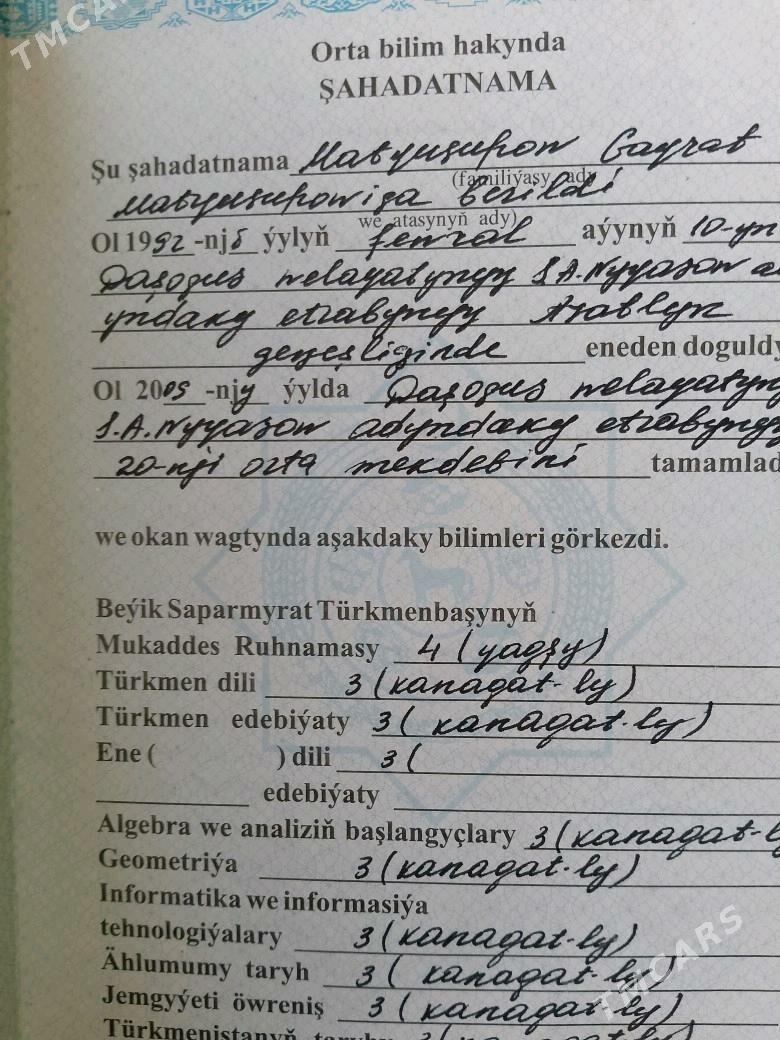 TMCARS
Orta bilim hakynda
ŞAHADATNAMA
Şu şahadatnama Matyusupow Gayrat
(familiýasy, ady
Matyusupowiça berildi
we atasynyň ady)
Ol 1992-nji ýylyň fewral aýynyň 10-yn
Daşoguz welayatyngy S.A.Nyyazow ad
yndaky etrabyngy Atablyk
geňeşliginde eneden doguldy
Ol 2009-njy ýylda Daşoguz welayatyng
S.A.Nyyazow adyndaky etrabyngy
20-nji orta mekdebini tamamlad
we okan wagtynda aşakdaky bilimleri görkezdi.
Beýik Saparmyrat Türkmenbaşynyň
Mukaddes Ruhnamasy 4 (yagşy)
Türkmen dili 3 (kanagat-ly)
Türkmen edebiýaty 3 (kanagat-ly)
Ene ( ) dili 3 (
edebiýaty
Algebra we analiziň başlangyçlary 3 (kanagat-ly
Geometriýa 3 (kanagat-ly)
Informatika we informasiýa
tehnologiýalary 3 (kanagat-ly)
Ählumumy taryh 3 (kanagat-ly)
Jemgyýeti öwreniş 3 (kanagat-ly)
TMCARS